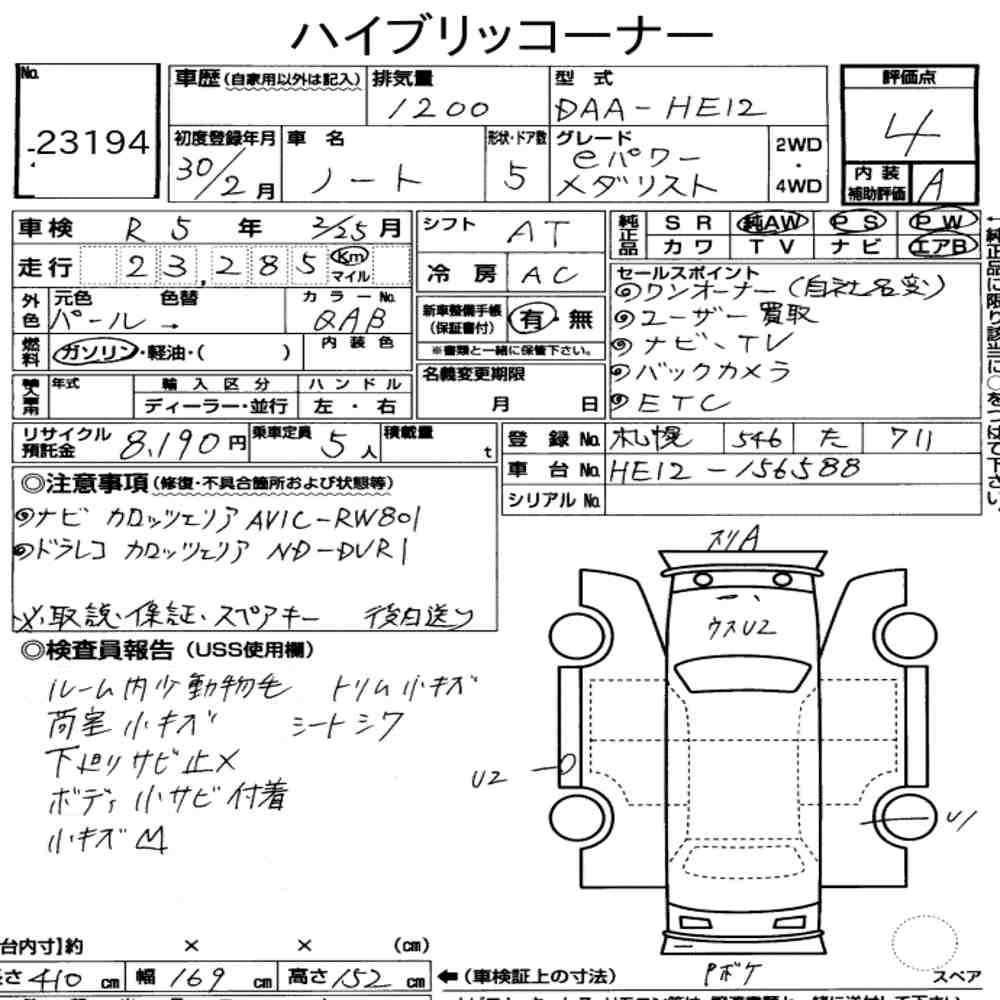 ハイブリッコーナー
No.
-23194
車歴(自家用以外は記入)
排気量
1200
型 式
DAA-HE12
評価点
4
初度登録年月
30/2月
車 名
ノート
形状・ドア数
5
グレード
eパワー
メダリスト
2WD
・
4WD
内 装
補助評価
A
車検 R 5 年 2/25月
シフト AT
純正品
SR 純AW PS PW
カワ TV ナビ エアB
走行 23,285 Km
マイル
冷 房 AC
セールスポイント
◎ワンオーナー(自社名変)
◎ユーザー買取
◎ナビ、TV
◎バックカメラ
◎ETC
外色
元色 色替
パール →
カラーNo.
QAB
新車整備手帳
(保証書付)
有・無
※書類と一緒に保管下さい。
燃料
ガソリン・軽油・( )
内 装 色
名義変更期限
月 日
年式
輸 入 区 分
ディーラー・並行
ハ ン ド ル
左 ・ 右
リサイクル
預託金
8,190円
乗車定員
5人
積載量
t
登 録 No. 札幌 546 た 711
車 台 No. HE12-156588
シリアル No.
◎注意事項(修復・不具合箇所および状態等)
◎ナビ カロッツェリア AVIC-RW801
◎ドラレコ カロッツェリア ND-DVR1
※取説・保証・スペアキー 後日送り
◎検査員報告(USS使用欄)
ルーム内少動物毛 トリム小キズ
荷室小キズ シートシワ
下廻りサビ止メ
ボディ小サビ付着
小キズ
スリA
ウスU2
U2
U1
Pボケ
スペア
台内寸】約 × × (cm)
長さ410cm 幅169cm 高さ152cm
←(車検証上の寸法)